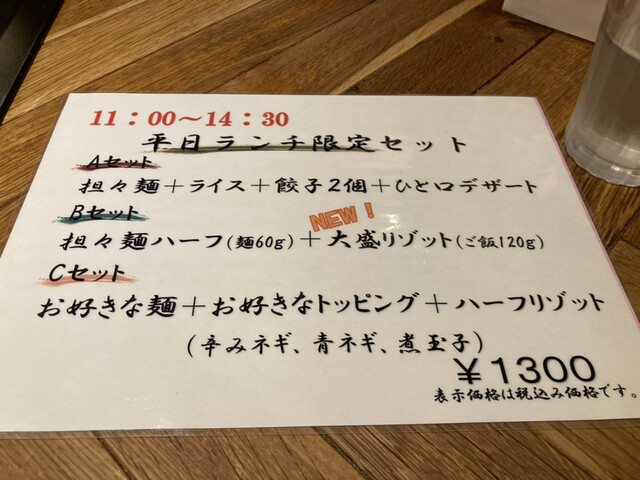 11：00～14：30
平日ランチ限定セット
Aセット
担々麺＋ライス＋餃子2個＋ひと口デザート
Bセット
NEW！
担々麺ハーフ(麺60g)＋大盛リゾット(ご飯120g)
Cセット
お好きな麺＋お好きなトッピング＋ハーフリゾット
(辛みネギ、青ネギ、煮玉子)
￥1300
表示価格は税込み価格です。